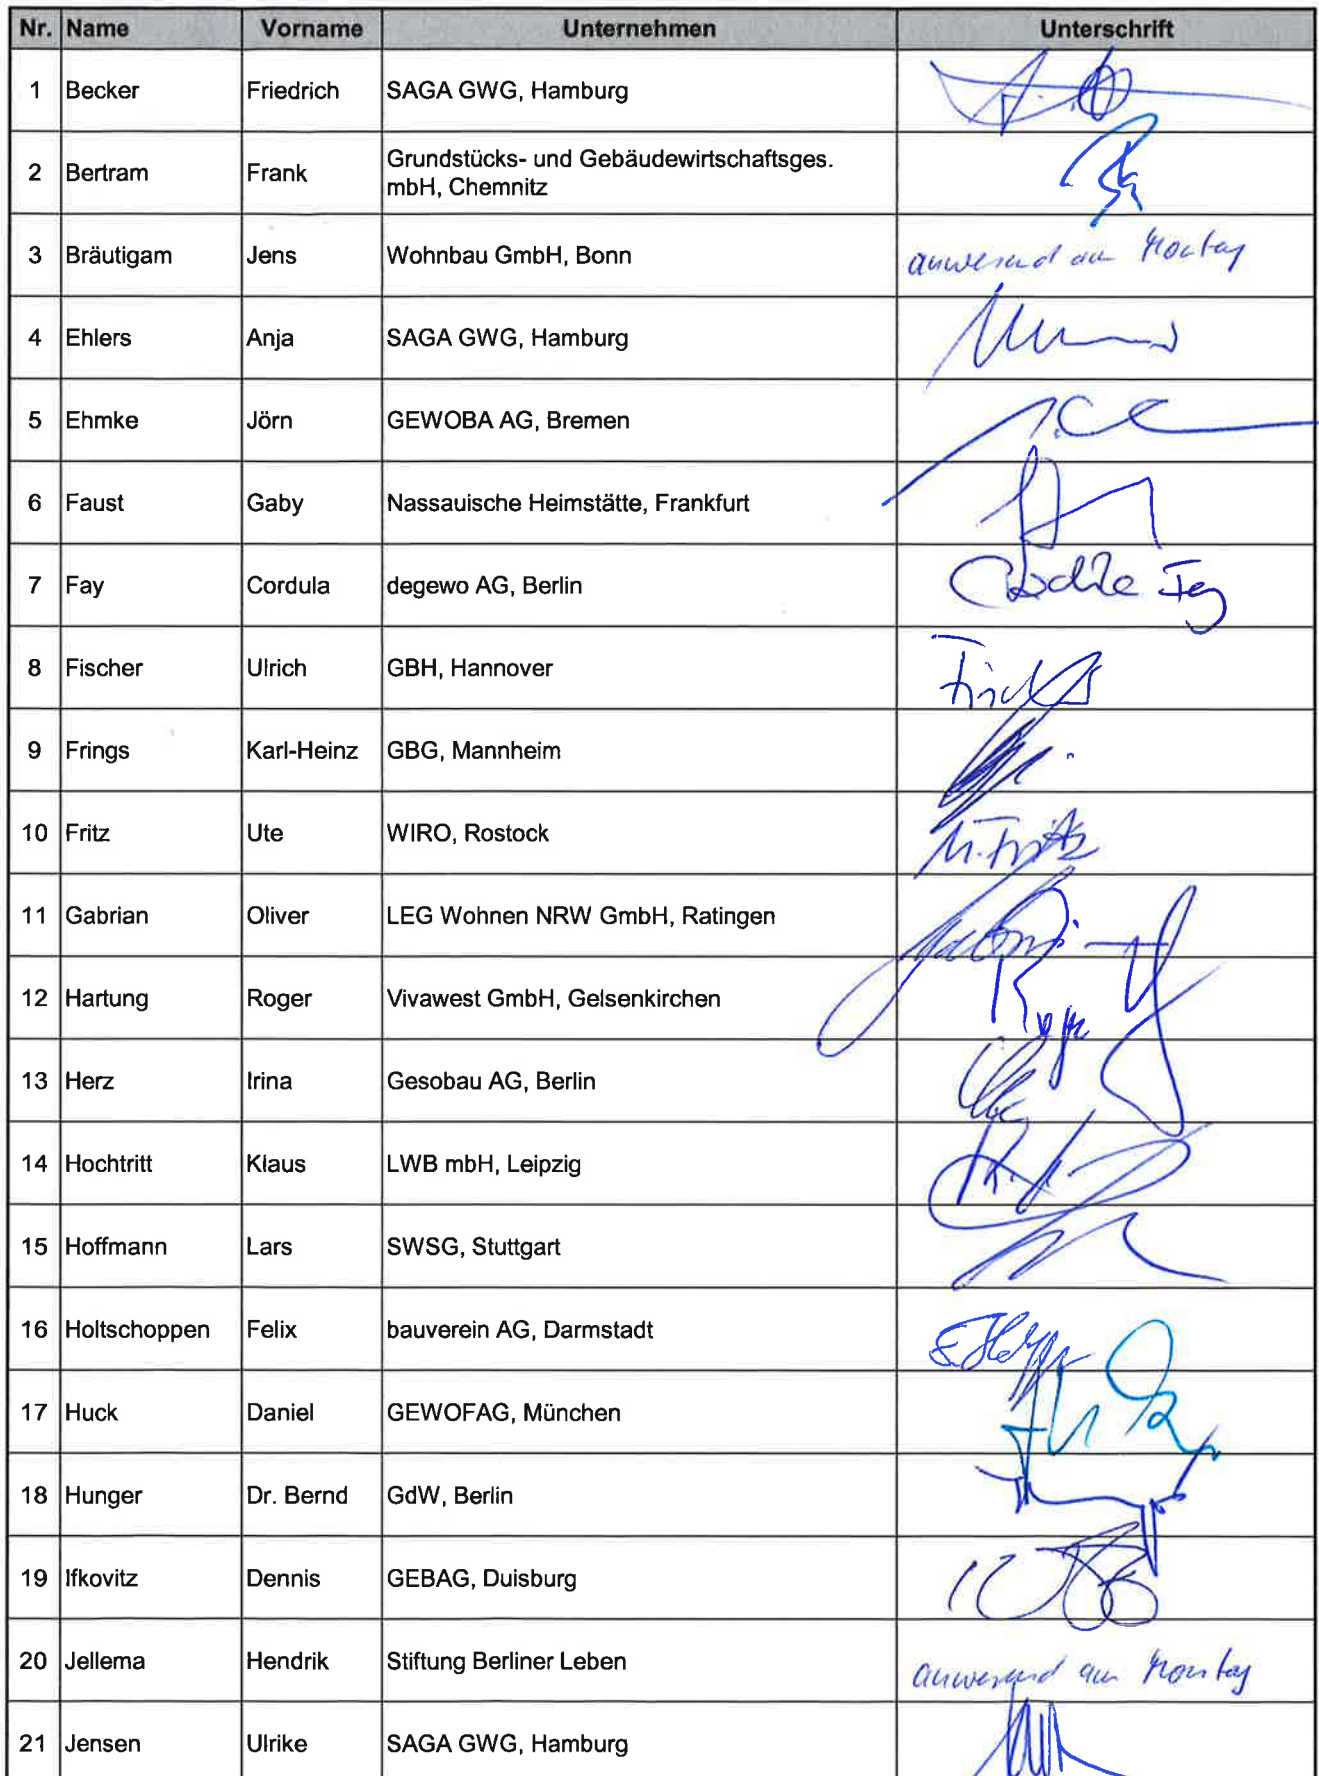 Nr. Name Vorname Unternehmen Unterschrift
1 Becker Friedrich SAGA GWG, Hamburg
2 Bertram Frank Grundstücks- und Gebäudewirtschaftsges.
mbH, Chemnitz
3 Bräutigam Jens Wohnbau GmbH, Bonn anwesend am Montag
4 Ehlers Anja SAGA GWG, Hamburg
5 Ehmke Jörn GEWOBA AG, Bremen
6 Faust Gaby Nassauische Heimstätte, Frankfurt
7 Fay Cordula degewo AG, Berlin
8 Fischer Ulrich GBH, Hannover
9 Frings Karl-Heinz GBG, Mannheim
10 Fritz Ute WIRO, Rostock U. Fritz
11 Gabrian Oliver LEG Wohnen NRW GmbH, Ratingen
12 Hartung Roger Vivawest GmbH, Gelsenkirchen
13 Herz Irina Gesobau AG, Berlin
14 Hochtritt Klaus LWB mbH, Leipzig
15 Hoffmann Lars SWSG, Stuttgart
16 Holtschoppen Felix bauverein AG, Darmstadt
17 Huck Daniel GEWOFAG, München
18 Hunger Dr. Bernd GdW, Berlin
19 Ifkovitz Dennis GEBAG, Duisburg
20 Jellema Hendrik Stiftung Berliner Leben anwesend am Montag
21 Jensen Ulrike SAGA GWG, Hamburg